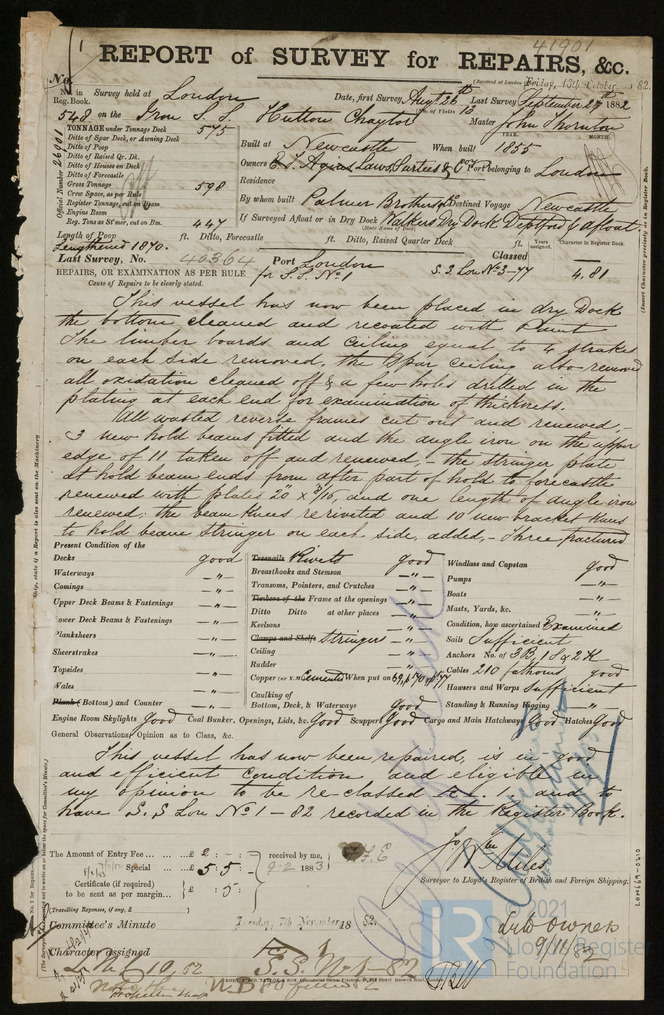 41901
REPORT of SURVEY for REPAIRS, &c.
(Received at London Friday, 13th October 1882.
No. in Reg. Book. Survey held at London Date, first Survey Augt 26th Last Survey September 27th 1882
No. of Visits 13
548 on the Iron S.S. Hutton Chaytor Master John Thornton
TONNAGE under Tonnage Deck 575
Ditto of Spar Deck, or Awning Deck
Ditto of Poop
Ditto of Raised Qr. Dk.
Ditto of Houses on Deck
Ditto of Forecastle
Gross Tonnage 598
Crew Space, as per Rule
Register Tonnage, cut on Beam
Engine Room
Reg. Tons as St'mer, cut on Bm. 447
Official Number
YEAR. MONTH.
Built at Newcastle When built 1855
Owners Laws, Surtees & Co Port belonging to London
Residence
By whom built Palmer Brothers Destined Voyage Newcastle
If Surveyed Afloat or in Dry Dock Walkers Dry Dock Deptford & afloat
(State Name of Dock)
Length of Poop ft. Ditto, Forecastle ft. Ditto, Raised Quarter Deck ft.
Lengthened 1870.
Years assigned. Character in Register Book.
Last Survey, No. 40364 Port London Classed
REPAIRS, OR EXAMINATION AS PER RULE for S.S. No 1 S.S. Lon No 3-77 4.81
Cause of Repairs to be clearly stated.
This vessel has now been placed in dry Dock
the bottom cleaned and recoated with Paint
The limber boards and ceiling equal to 4 strakes
on each side removed, the Spar ceiling also removed
all oxidation cleaned off & a few holes drilled in the
plating at each end for examination of thickness.
All wasted reverse frames cut out and renewed,-
3 new hold beams fitted and the angle iron on the upper
edge of 11 taken off and renewed,- the stringer plate
at hold beam ends from after part of hold to forecastle
renewed with plates 20" x 9/16, and one length of angle iron
renewed; the beam knees rerivetted and 10 new bracket knees
to hold beam stringer on each side, added,- three fractured
Present Condition of the
Decks good
Waterways -"-
Comings -"-
Upper Deck Beams & Fastenings -"-
Lower Deck Beams & Fastenings -"-
Planksheers -"-
Sheerstrakes -"-
Topsides -"-
Wales -"-
Plank (Bottom) and Counter -"-
Treenails Rivets good
Breasthooks and Stemson -"-
Transoms, Pointers, and Crutches -"-
Timbers of the Frame at the openings -"-
Ditto Ditto at other places -"-
Keelsons -"-
Clamps and Shelfs Stringers -"-
Ceiling -"-
Rudder -"-
Copper (or Y.M. Cemented When put on 69, pt 70 & pt 77
Caulking of
Bottom, Deck, & Waterways good
Windlass and Capstan good
Pumps -"-
Boats -"-
Masts, Yards, &c. -"-
Condition, how ascertained Examined
Sails Sufficient
Anchors No. of 3B, 1S, 2K
Cables 210 fathoms good
Hawsers and Warps Sufficient
Standing & Running Rigging -"-
Engine Room Skylights Good Coal Bunker, Openings, Lids, &c. Good Scuppers Good Cargo and Main Hatchways Good Hatches Good
General Observations, Opinion as to Class, &c.
This vessel has now been repaired, is in good
and efficient condition and eligible in
my opinion to be re-classed 1 and to
have S.S Lon No 1 - 82 recorded in the Register Book.
The Amount of Entry Fee £ 2 : - :
Special £ 5 : 5 :
Certificate (if required) to be sent as per margin £ : 5 :
received by me,
9.2 1883
(Travelling Expenses, if any, £ )
Surveyor to Lloyd's Register of British and Foreign Shipping.
Committee's Minute Tuesday, 7th November 1882.
Character assigned
S.S. No 1 - 82
9/11/82
LON669-0310
© 2021
Lloyd's Register
Foundation